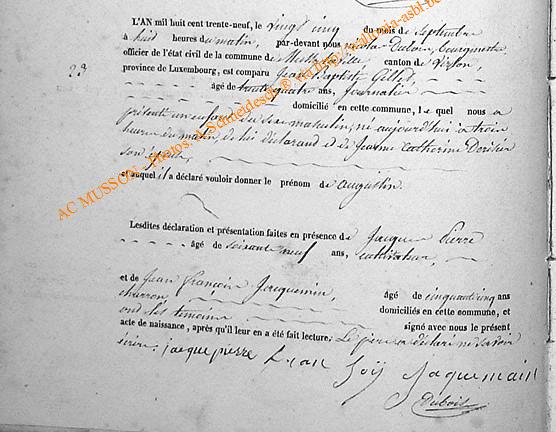 L'AN mil huit cent trente-neuf, le vingt cinq du mois de Septembre
à huit heures du matin, par-devant nous Dubois, bourgmestre
officier de l'état civil de la commune de ville canton de Virton,
23 province de Luxembourg, est comparu Jean Baptiste
âgé de trente quatre ans, journalier
domicilié en cette commune, le quel nous a
présenté un enfant du sexe masculin, né aujourd'hui à trois
heures du matin, de lui déclarant et de Jeanne Catherine
son épouse,
et auquel il a déclaré vouloir donner le prénom de augustin.
Lesdites déclaration et présentation faites en présence de Jacques Pierre
âgé de soixante neuf ans, cultivateur,
et de Jean françois Jacquemin, âgé de cinquante cinq ans
charron, domiciliés en cette commune, et
ont les témoins signé avec nous le présent
acte de naissance, après qu'il leur en a été fait lecture. Le père a déclaré ne savoir
écrire. jacque pierre Jean Jaquemain
Dubois
AC MUSSON - Photos A. Schneidesch ® via http://walthinia-asbl.be